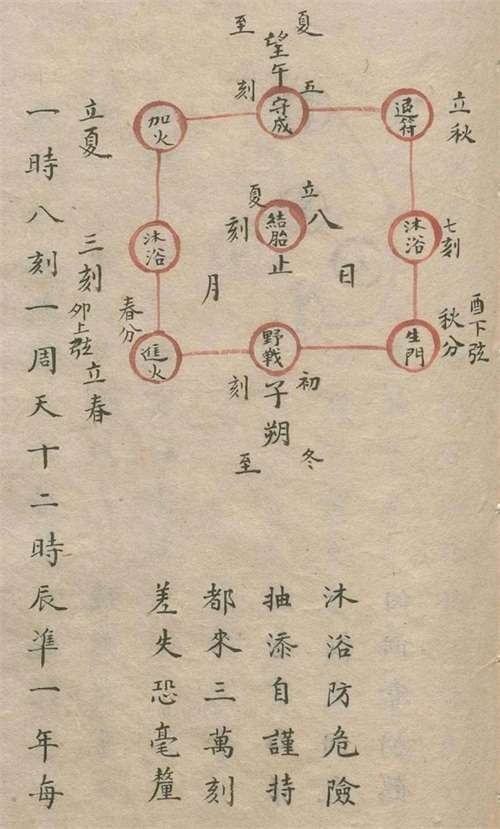 夏至
望午
五刻
守成
加火
退符
立秋
立夏
沐浴
三刻
卯上弦
立八刻
夏
結胎
止
沐浴
七刻
日
月
春分
進火
立春
野戰
初刻
子朔
冬至
生門
秋分
酉下弦
沐浴防危險
抽添自謹持
都來三萬刻
差失恐毫釐
一時八刻一周天十二時辰準一年每